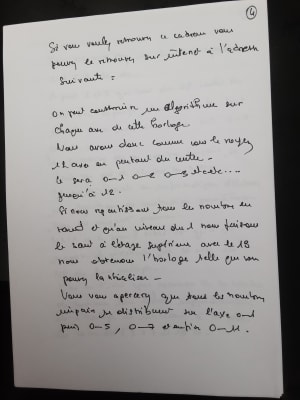 4
Si vous voulez retrouver ce cadran vous
pouvez le retrouver sur internet à l'adresse
suivante :
On peut construire un algorithme sur
chaque axe de cette horloge
Nous avons donc comme vous le voyez
12 axes en partant du centre -
Ce sera 0-1 0-2 0-3 etc....
jusqu'à 12.
Si nous répartissons tous les nombres en
et qu'au niveau du 1 nous faisons
le saut à l'étage supérieur avec le 13
nous obtenons l'horloge telle que vous
pouvez la visualiser -
Vous vous apercevez que tous les nombres
se distribuent sur l'axe
puis 0-5, 0-7 et enfin 0-11.